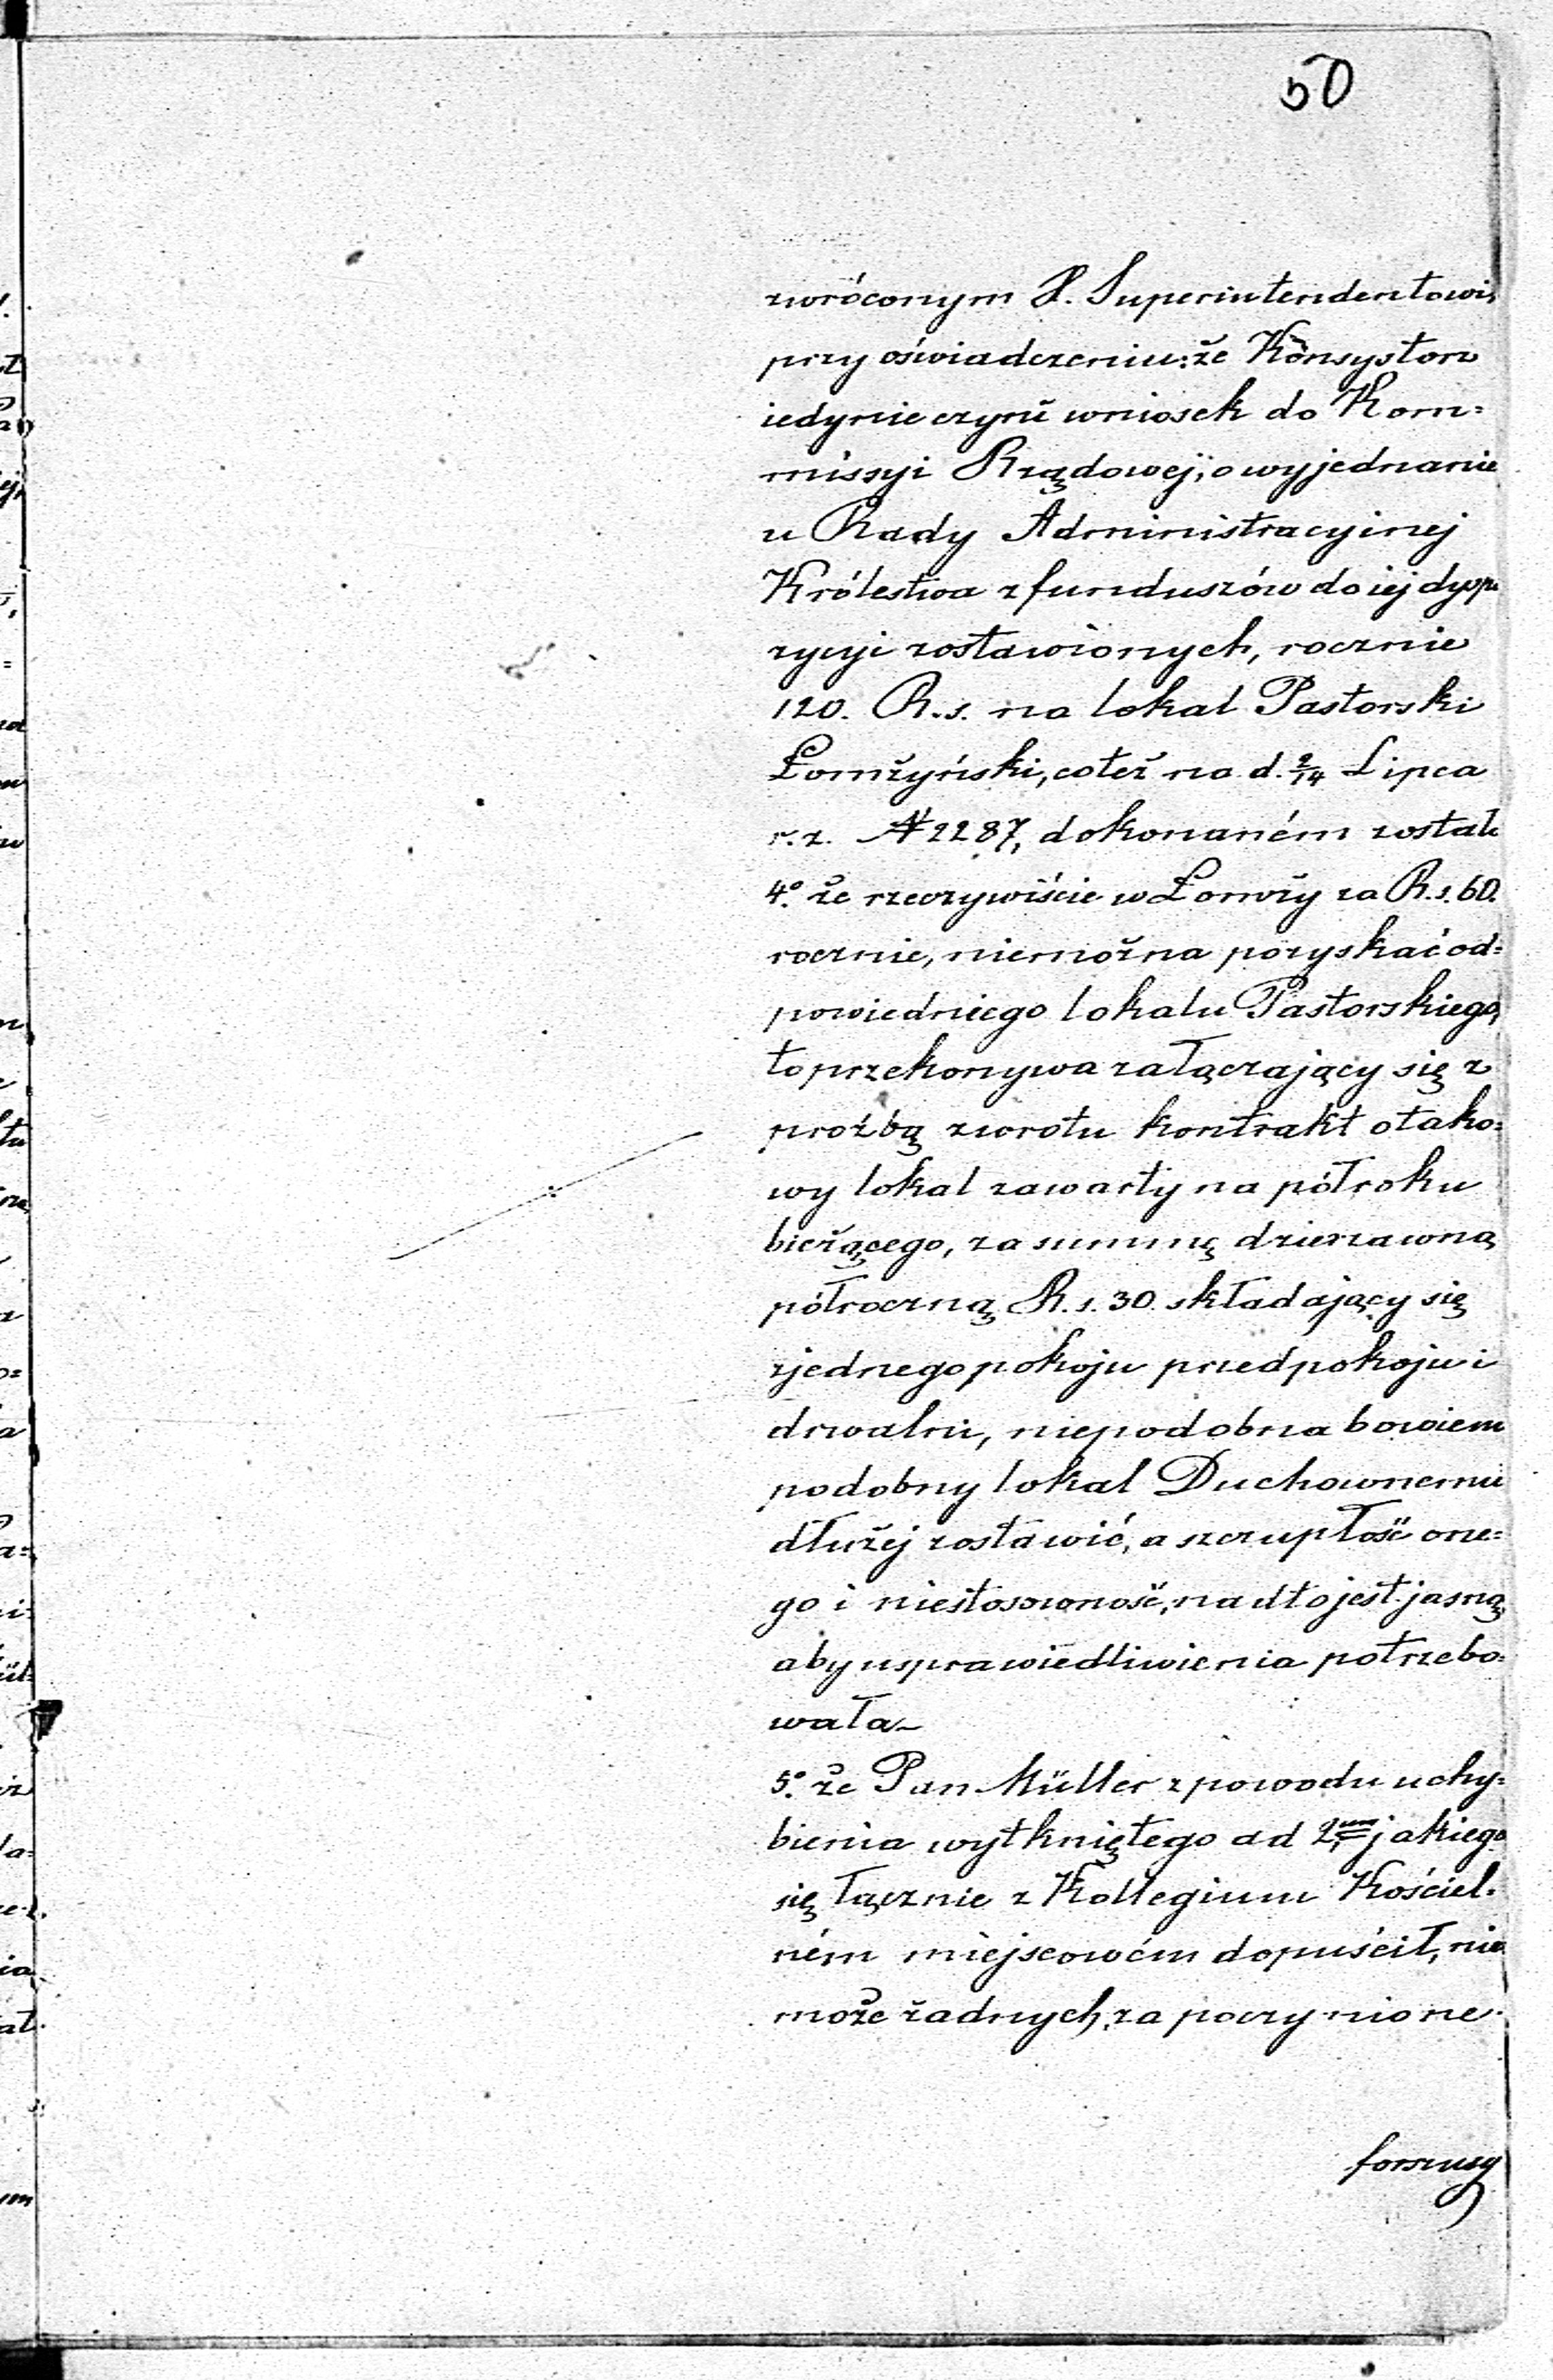 50
zwróconym P. Superintendentowi,
przy oświadczeniu: że Konsystorz
iedynie czyni wniosek do Kom=
missyi Rządowej, o wyjednanie
u Rady Administracyinej
Królestwa z funduszów do iej dyspo
zycyi zostawionych, rocznie
120. R.s. na lokal Pastorski
Łomżyński, co też na d. 2/14 Lipca
r.z. № 2287, dokonaném zostało
4.° że rzeczywiście w Łomży za R.s. 60.
rocznie, niemożna pozyskać od=
powiedniego lokalu Pastorskiego,
to przekonywa załączający się z
proźbą zwrotu kontrakt o tako=
wy lokal zawarty na pół roku
bieżącego, za summę dzierzawną
półroczną R.s. 30. składający się
z jednego pokoju przedpokoju i
drwalni, niepodobna bowiem
podobny lokal Duchownemu
dłużej zostawić, a szczupłość one=
go i niestosowność, nadto jest jasną,
aby usprawiedliwienia potrzebo=
wała
5.° że Pan Müller z powodu uchy=
bienia wytkniętego ad 2um jakiego
się łącznie z Kollegium Kościel=
ném miejscowém dopuścił, nie
może żadnych, za poczynione